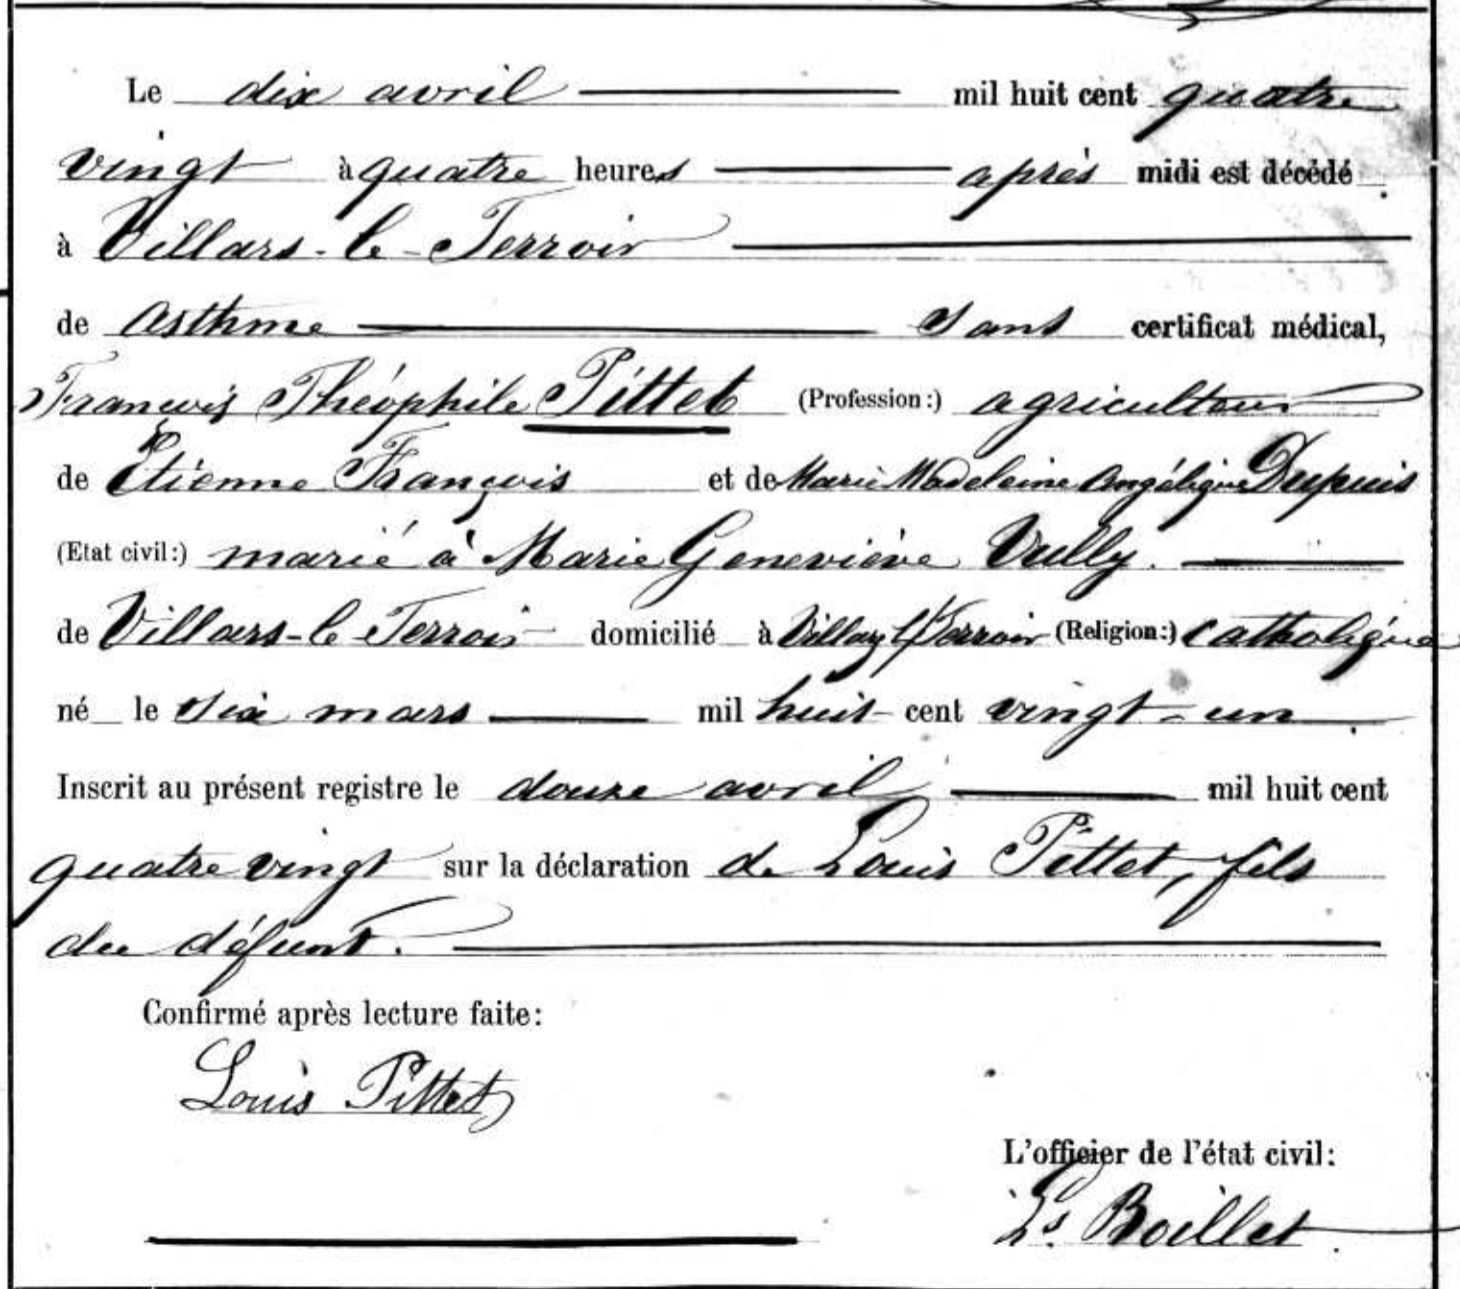 Le dix avril mil huit cent quatre
vingt à quatre heures après midi est décédé
à Villars-le-Terroir
de Asthme sans certificat médical,
François Théophile Pittet (Profession:) agriculteur
de Etienne François et de Marie Madeleine Angélique Dupuis
(Etat civil:) marié à Marie Geneviève Vully.
de Villars-le-Terroir domicilié à Villars l/Terroir (Religion:) catholique
né le six mars mil huit cent vingt-un
Inscrit au présent registre le douze avril mil huit cent
quatre vingt sur la déclaration de Louis Pittet, fils
du défunt.
Confirmé après lecture faite:
Louis Pittet
L'officier de l'état civil:
Ls. Boillet